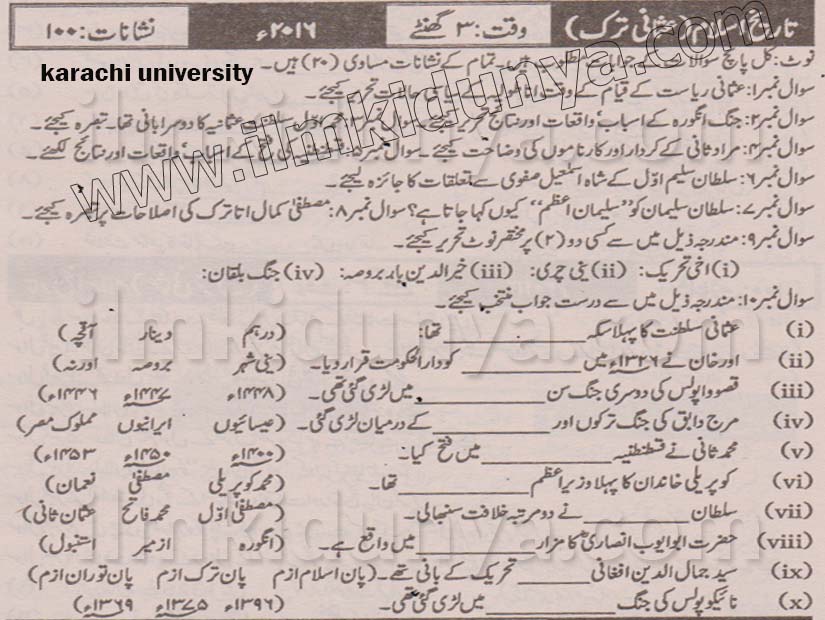 تاریخ اسلام (عثمانی ترک) وقت: ۳ گھنٹے ۲۰۱۶ء نشانات: ۱۰۰
karachi university
نوٹ: کل پانچ سوالات کے جوابات مطلوب ہیں۔ تمام کے نشانات مساوی (۲۰) ہیں۔
سوال نمبر۱: عثمانی ریاست کے قیام کے وقت اناطولیہ کے سیاسی حالات تحریر کیجئے۔
سوال نمبر۲: جنگ انگورہ کے اسباب، واقعات اور نتائج تحریر کیجئے۔ سوال نمبر۳: محمد اوّل سلطنت عثمانیہ کا دوسرا بانی تھا۔ تبصرہ کیجئے۔
سوال نمبر۴: مراد ثانی کے کردار اور کارناموں کی وضاحت کیجئے۔ سوال نمبر۵: قسطنطنیہ کی فتح کے اسباب، واقعات اور نتائج لکھئے۔
سوال نمبر۶: سلطان سلیم اوّل کے شاہ اسمٰعیل صفوی سے تعلقات کا جائزہ لیجئے۔
سوال نمبر۷: سلطان سلیمان کو "سلیمان اعظم" کیوں کہا جاتا ہے؟ سوال نمبر۸: مصطفیٰ کمال اتاترک کی اصلاحات پر تبصرہ کیجئے۔
سوال نمبر۹: مندرجہ ذیل میں سے کسی دو (۲) پر مختصر نوٹ تحریر کیجئے۔
(i) اخی تحریک: (ii) ینی چری: (iii) خیر الدین باربروصہ: (iv) جنگ بلقان:
سوال نمبر۱۰: مندرجہ ذیل میں سے درست جواب منتخب کیجئے۔
(i) عثمانی سلطنت کا پہلا سکہ ________ تھا: (درہم دینار آقچہ)
(ii) اورخان نے ۱۳۲۶ء میں ________ کو دارالحکومت قرار دیا۔ (ینی شہر بروصہ اورنہ)
(iii) قصوواپولس کی دوسری جنگ سن ________ میں لڑی گئی تھی۔ (۱۴۴۸ء ۱۴۴۷ء ۱۴۴۶ء)
(iv) مرج دابق کی جنگ ترکوں اور ________ کے درمیان لڑی گئی۔ (عیسائیوں ایرانیوں مملوک مصر)
(v) محمد ثانی نے قسطنطنیہ ________ میں فتح کیا۔ (۱۴۰۰ء ۱۴۵۰ء ۱۴۵۳ء)
(vi) کوپریلی خاندان کا پہلا وزیراعظم ________ تھا۔ (محمد کوپریلی مصطفیٰ نعمان)
(vii) سلطان ________ نے دو مرتبہ خلافت سنبھالی۔ (مصطفیٰ اوّل محمد فاتح عثمان ثانی)
(viii) حضرت ابو ایوب انصاریؓ کا مزار ________ میں واقع ہے۔ (انگورہ ازمیر استنبول)
(ix) سید جمال الدین افغانی ________ تحریک کے بانی تھے۔ (پان اسلام ازم پان ترک ازم پان توران ازم)
(x) نائیکوپولس کی جنگ ________ میں لڑی گئی تھی۔ (۱۳۹۶ء ۱۳۷۵ء ۱۳۶۹ء)
www.ilmkidunya.com
ilmkidunya.com
ilmkidunya.com